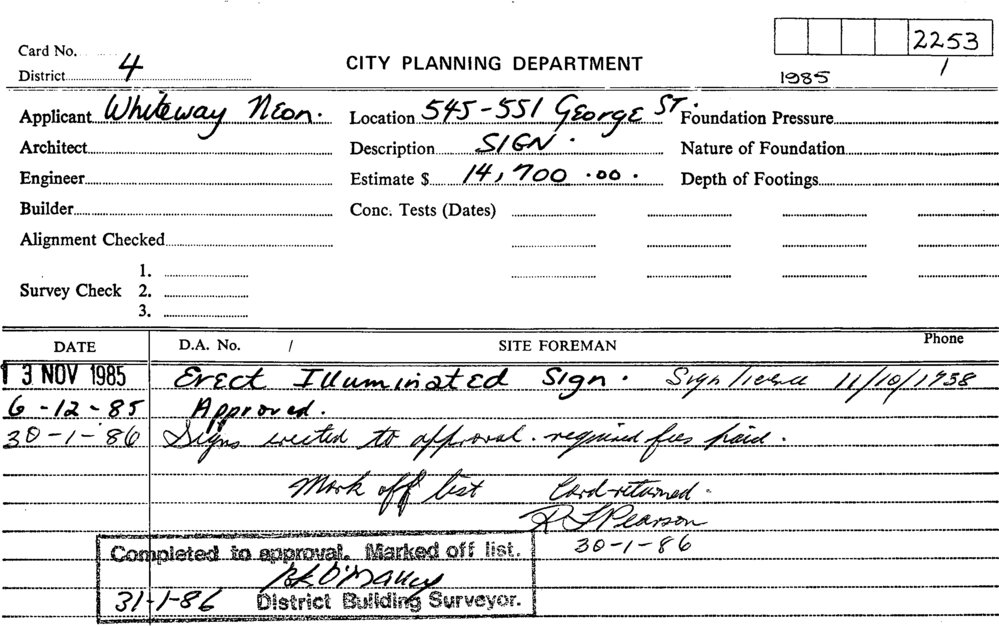 2253
Card No.
District 4
CITY PLANNING DEPARTMENT
1985 /
Applicant Whiteway Neon.
Location 545-551 George St.
Foundation Pressure
Architect
Description SIGN.
Nature of Foundation
Engineer
Estimate $ 14,700.00.
Depth of Footings
Builder
Conc. Tests (Dates)
Alignment Checked
Survey Check 1.
2.
3.
DATE D.A. No. / SITE FOREMAN Phone
13 NOV 1985 Erect Illuminated Sign. Sign licence 11/10/1938
6-12-85 Approved.
30-1-86 Signs erected to approval. required fees paid.
Mark off list Card returned.
Pearson
30-1-86
Completed to approval. Marked off list.
31-1-86 District Building Surveyor.